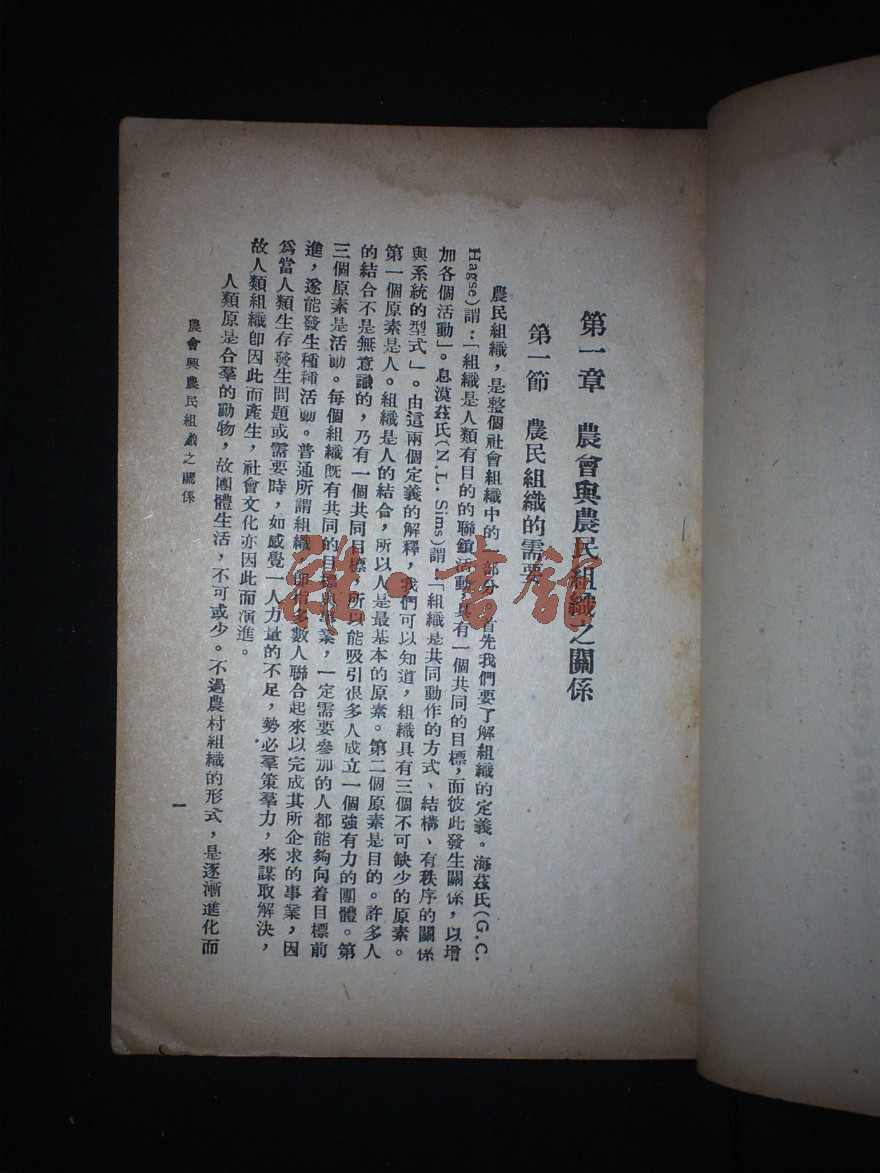 第一章　農會與農民組織之關係
第一節　農民組織的需要
農民組織，是整個社會組織中的一部分，首先我們要了解組織的定義。海茲氏（G.C.
Hagse）謂：「組織是人類有目的的聯鎖活動，具有一個共同的目標，而彼此發生關係，以增
加各個活動」。息漠茲氏（N.L. Sims）謂：「組織是共同動作的方式、結構、有秩序的關係
與系統的型式」。由這兩個定義的解釋，我們可以知道，組織具有三個不可缺少的原素。
第一個原素是人。組織是人的結合，所以人是最基本的原素。第二個原素是目的。許多人
的結合不是無意識的，乃有一個共同目標，所以能吸引很多人成立一個強有力的團體。第
三個原素是活動。每個組織旣有共同的目標與事業，一定需要參加的人都能夠向着目標前
進，遂能發生種種活動。普通所謂組織，卽指多數人聯合起來以完成其所企求的事業，因
爲當人類生存發生問題或需要時，如感覺一人力量的不足，勢必羣策羣力，來謀取解決，
故人類組織卽因此而產生，社會文化亦因此而演進。
人類原是合羣的動物，故團體生活，不可或少。不過農村組織的形式，是逐漸進化而
農會與農民組織之關係
一
雜·書館